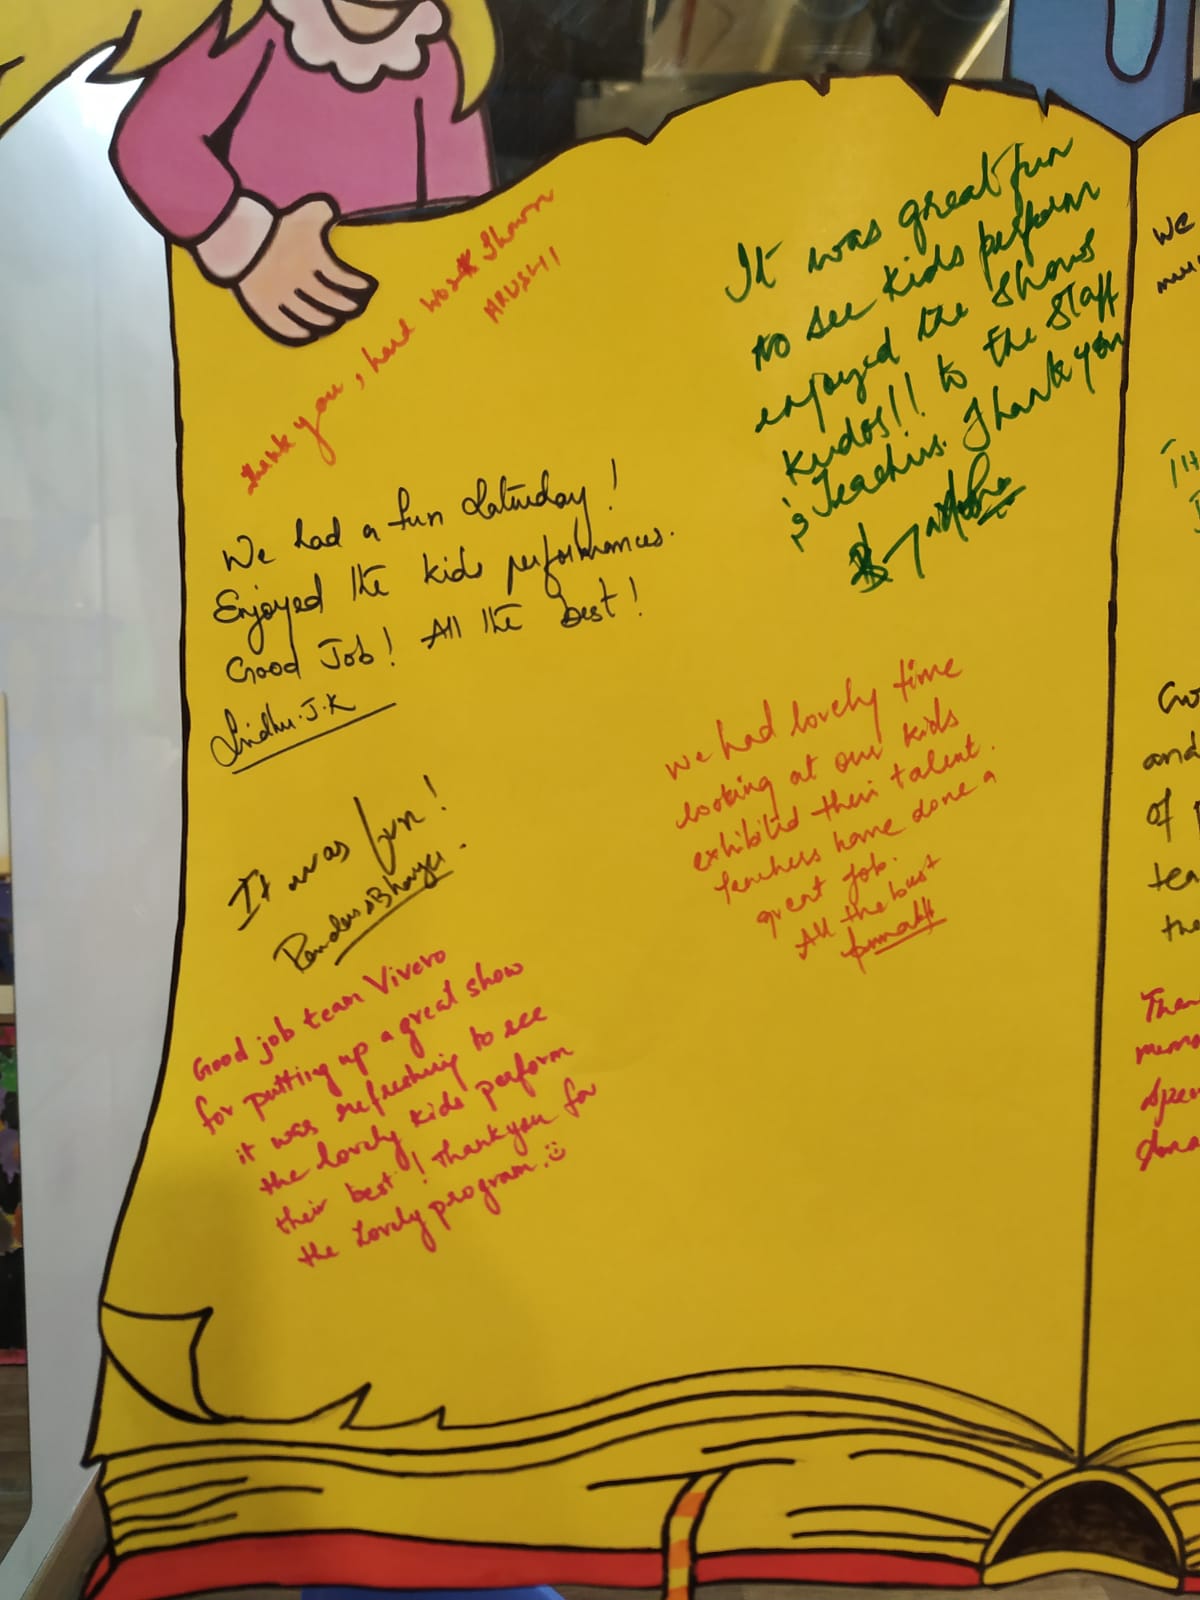 thank you, hard work shown
ARUSHI
We had a fun Saturday!
Enjoyed the kids performances.
Good Job! All the best!
Sindhu.J.K
It was fun!
Good job team Vivero
for putting up a great show
it was refreshing to see
the lovely kids perform
their best! Thankyou for
the lovely program. :)
It was great fun
to see kids perform
enjoyed the shows
Kudos!! to the staff
& Teachers. Thank you
we had lovely time
looking at our kids
exhibited their talent.
Teachers have done a
great job.
All the best
We
TH
and
of
tea
the